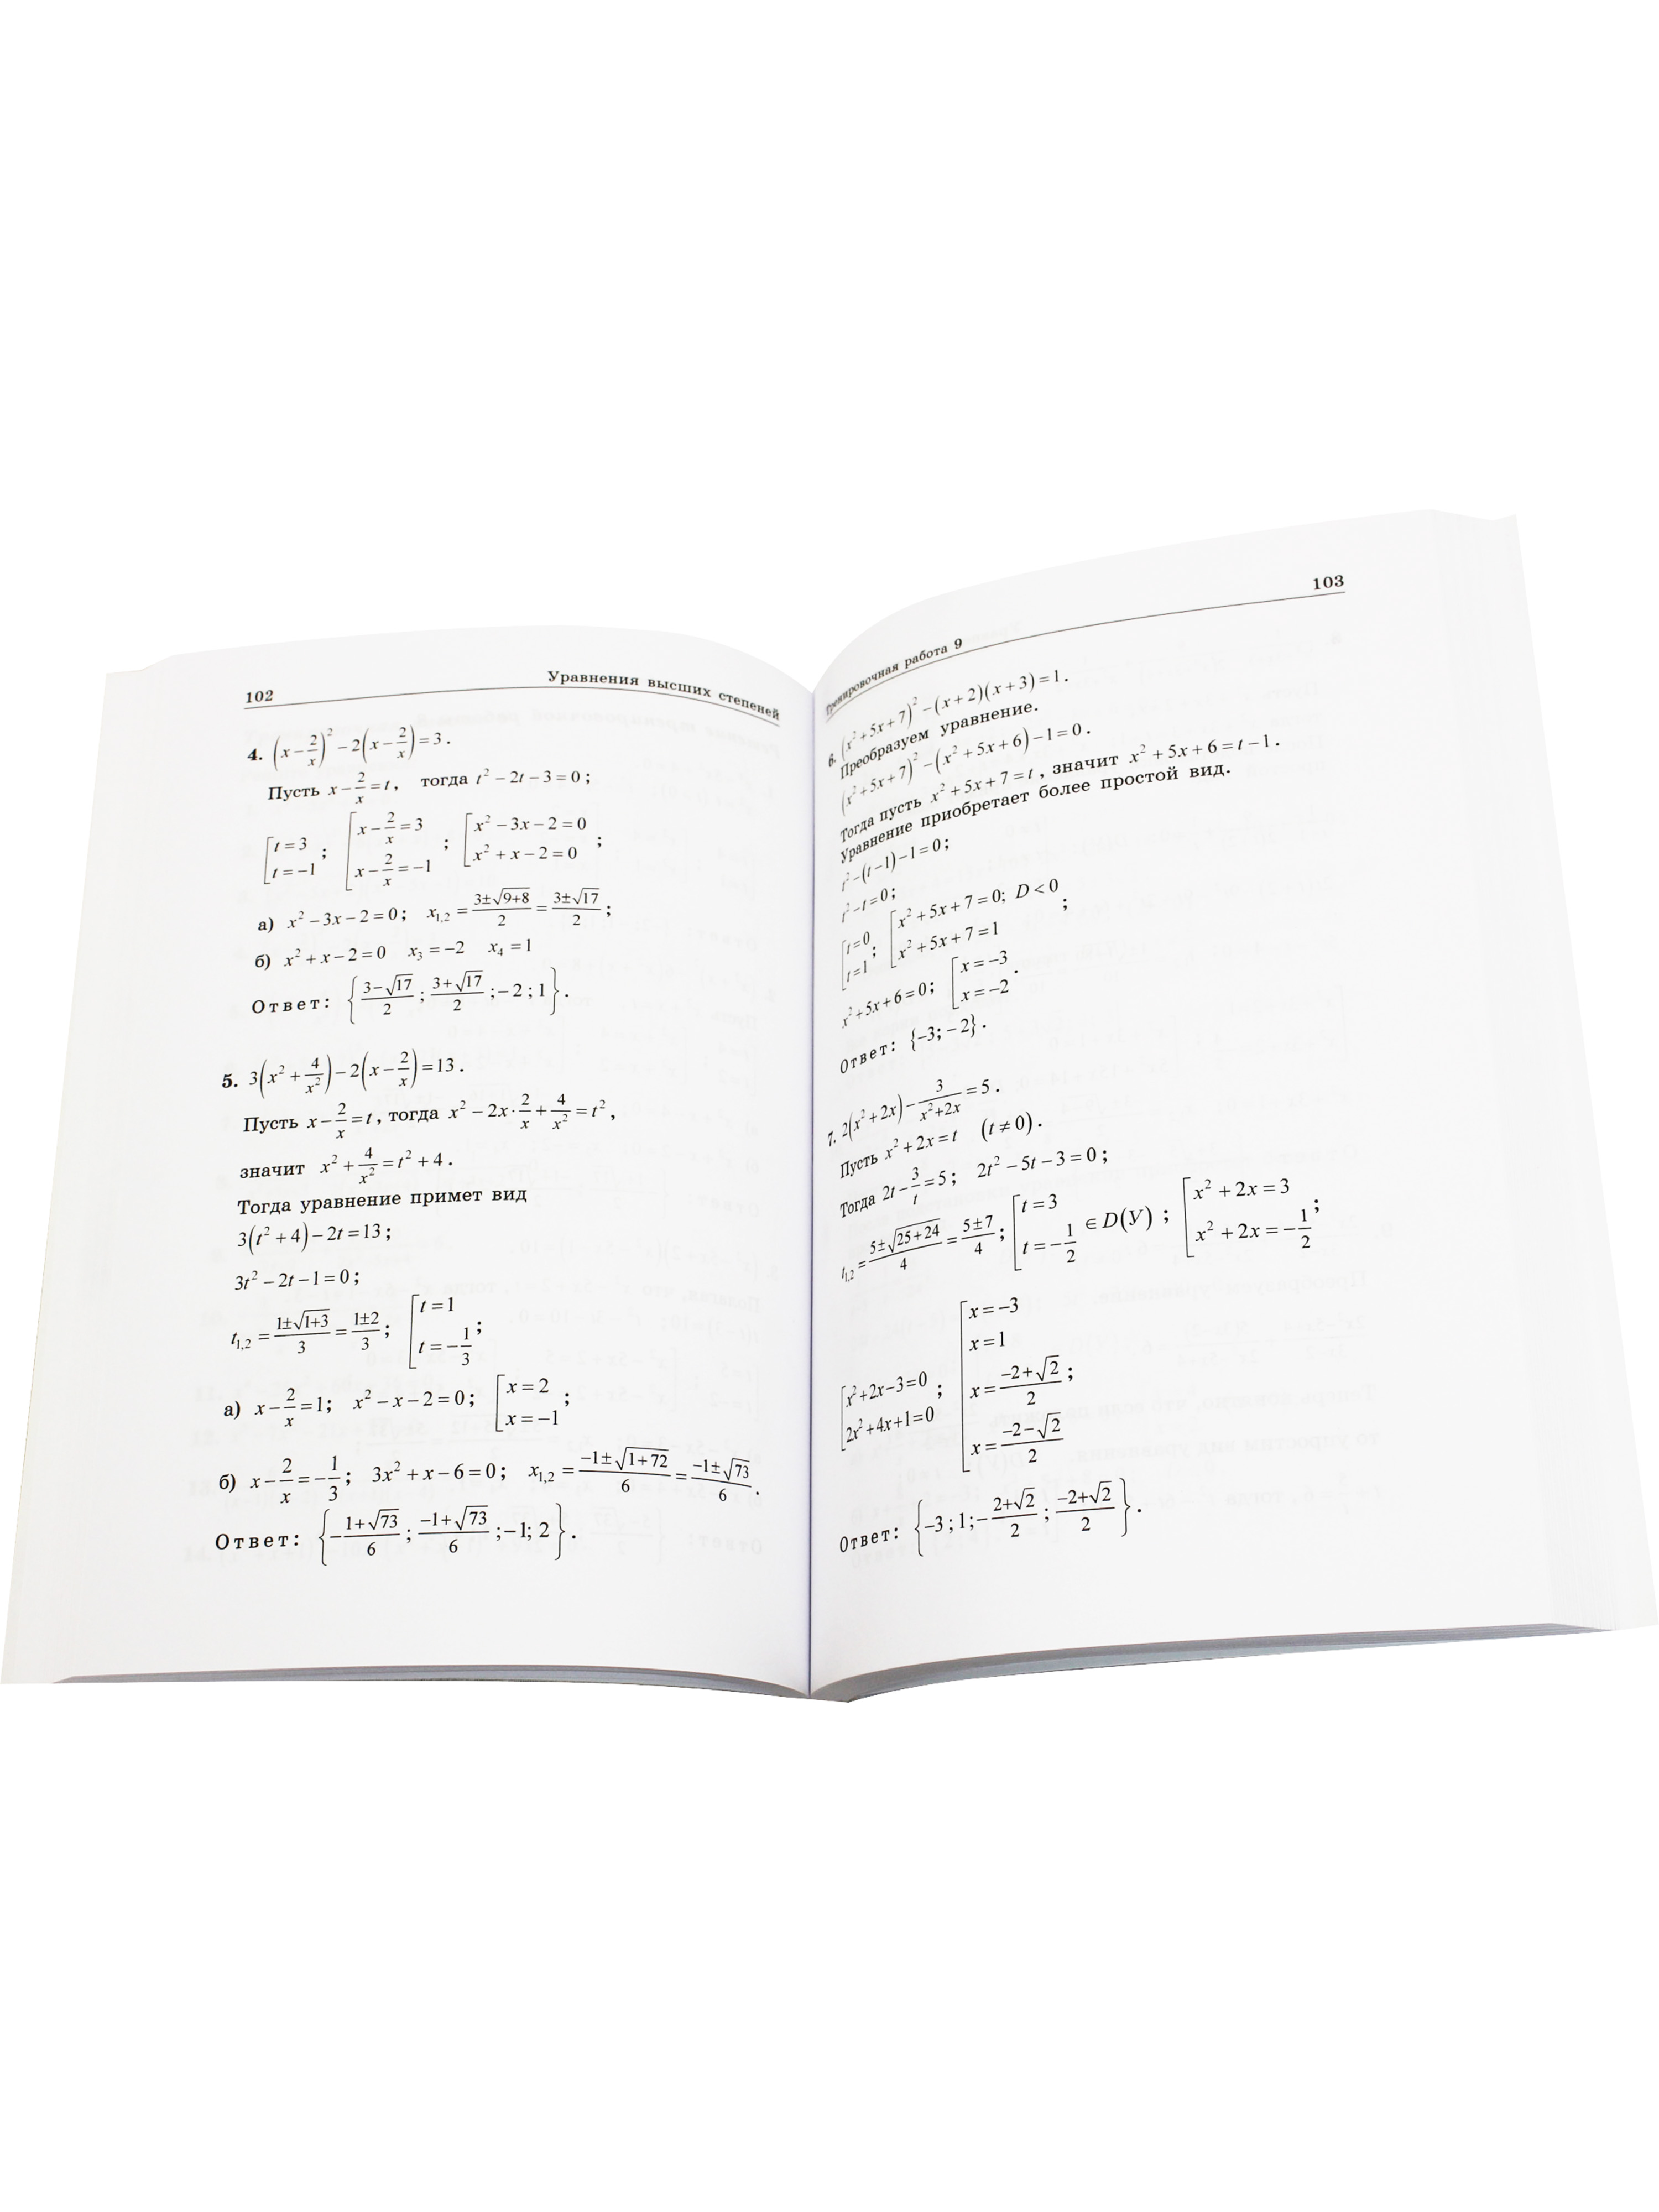 102 Уравнения высших степеней
4. (x − 2/x)² − 2(x − 2/x) = 3.
Пусть x − 2/x = t, тогда t² − 2t − 3 = 0;
[t = 3; t = −1; [x − 2/x = 3; x − 2/x = −1; [x² − 3x − 2 = 0; x² + x − 2 = 0;
а) x² − 3x − 2 = 0; x₁,₂ = (3±√(9+8))/2 = (3±√17)/2;
б) x² + x − 2 = 0 x₃ = −2 x₄ = 1
Ответ: {(3−√17)/2; (3+√17)/2; −2; 1}.
5. 3(x² + 4/x²) − 2(x − 2/x) = 13.
Пусть x − 2/x = t, тогда x² − 2x·2/x + 4/x² = t²,
значит x² + 4/x² = t² + 4.
Тогда уравнение примет вид
3(t² + 4) − 2t = 13;
3t² − 2t − 1 = 0;
t₁,₂ = (1±√(1+3))/3 = (1±2)/3; [t = 1; t = −1/3;
а) x − 2/x = 1; x² − x − 2 = 0; [x = 2; x = −1;
б) x − 2/x = −1/3; 3x² + x − 6 = 0; x₁,₂ = (−1±√(1+72))/6 = (−1±√73)/6.
Ответ: {−(1+√73)/6; (−1+√73)/6; −1; 2}.
Тренировочная работа 9 103
6. (x² + 5x + 7)² − (x + 2)(x + 3) = 1.
Преобразуем уравнение.
(x² + 5x + 7)² − (x² + 5x + 6) − 1 = 0.
Тогда пусть x² + 5x + 7 = t, значит x² + 5x + 6 = t − 1.
Уравнение приобретает более простой вид.
t² − (t − 1) − 1 = 0;
t² − t = 0;
[t = 0; t = 1; [x² + 5x + 7 = 0; D < 0; x² + 5x + 7 = 1;
x² + 5x + 6 = 0; [x = −3; x = −2.
Ответ: {−3; −2}.
7. 2(x² + 2x) − 3/(x² + 2x) = 5.
Пусть x² + 2x = t (t ≠ 0).
Тогда 2t − 3/t = 5; 2t² − 5t − 3 = 0;
t₁,₂ = (5±√(25+24))/4 = (5±7)/4; [t = 3; t = −1/2 ∈ D(У); [x² + 2x = 3; x² + 2x = −1/2;
[x² + 2x − 3 = 0; 2x² + 4x + 1 = 0; [x = −3; x = 1; x = (−2+√2)/2; x = (−2−√2)/2;
Ответ: {−3; 1; −(2+√2)/2; (−2+√2)/2}.